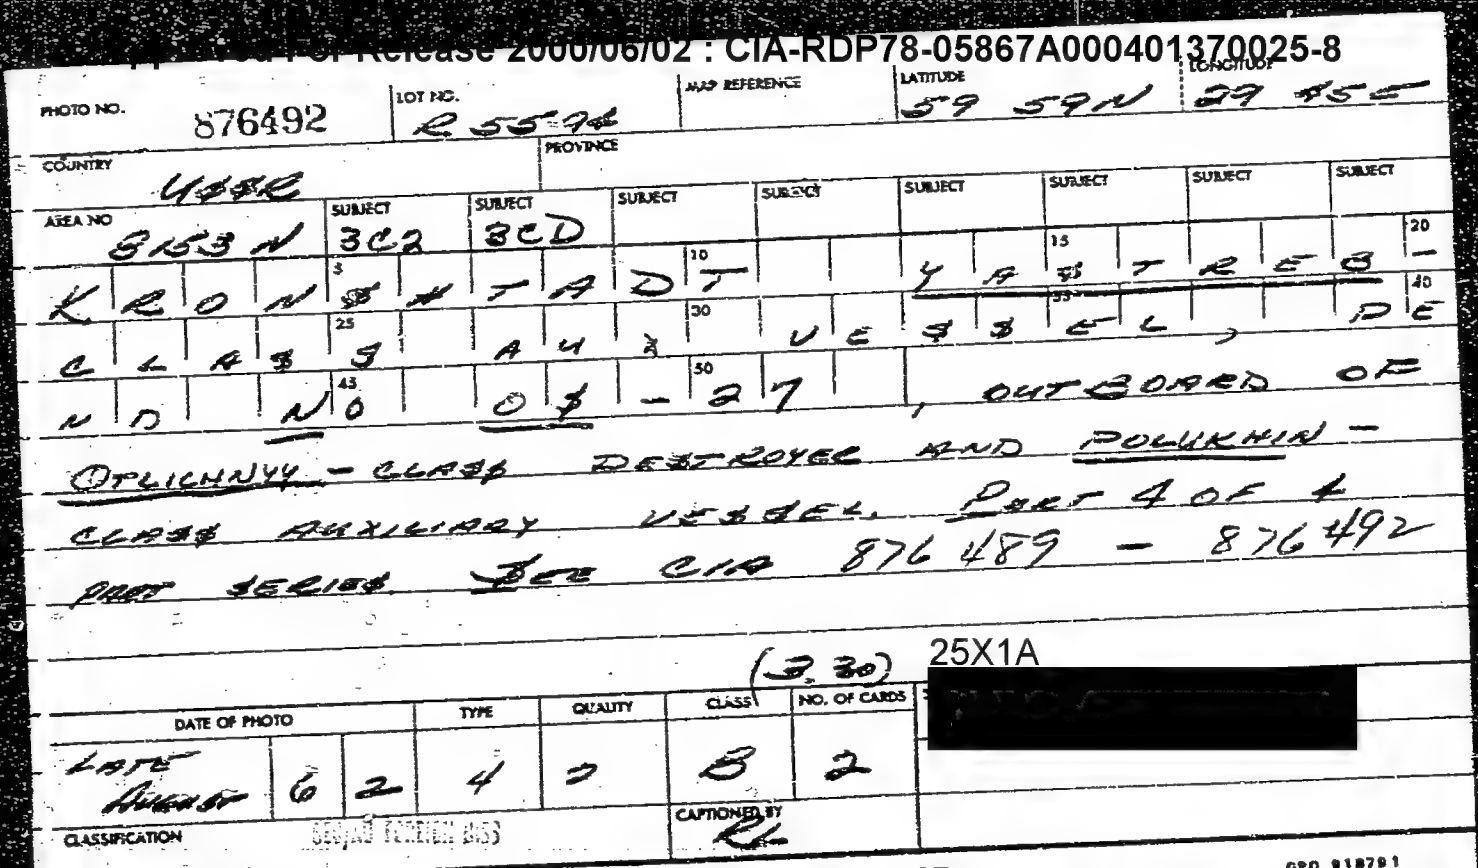 Approved For Release 2000/06/02 : CIA-RDP78-05867A000401370025-8
PHOTO NO. 876492 LOT NO. R 5594 MAP REFERENCE LATITUDE 59 59N LONGITUDE 29 45E
COUNTRY USSR PROVINCE
AREA NO 8153 N SUBJECT 3C2 SUBJECT 3CD SUBJECT SUBJECT SUBJECT SUBJECT SUBJECT SUBJECT
5 10 15 20
KRONSHTADT YASTREB-
25 30 35 40
CLASS AUX VESSEL, PE
45 50
ND NO OS-27, OUTBOARD OF
OTLICHNYY-CLASS DESTROYER AND POLUKHIN-
CLASS AUXILIARY VESSEL. PART 4 OF 4
PART SERIES. SEE CIA 876489 - 876492
(3.30) 25X1A
DATE OF PHOTO TYPE QUALITY CLASS NO. OF CARDS
LATE AUGUST 6 2 4 2 B 2
CLASSIFICATION CAPTIONED BY RL
GPO 918791